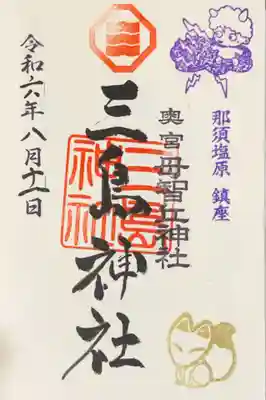 那須塩原 鎮座
奥宮 母智丘神社
三島神社
令和六年八月十一日